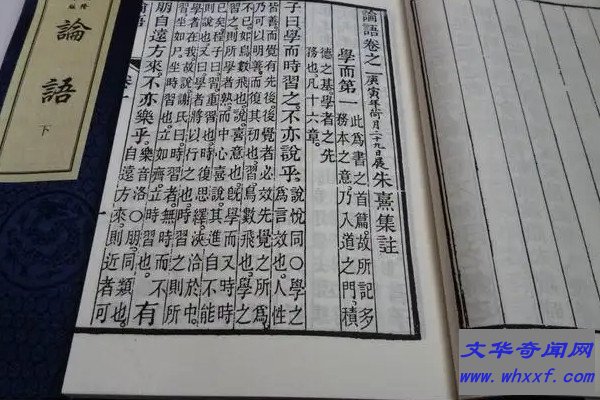 論語
下
論語卷之一 庚寅年荷月二十九日展 朱熹集註
學而第一
此爲書之首篇。故所記多
務本之意。乃入道之門。積
德之基。學者之先
務也。凡十六章。
子曰學而時習之。不亦說乎。
說悅同○學之
爲言效也。人性
皆善而覺有先後。後覺者必效先覺之所爲。
乃可以明善而復其初也。習鳥數飛也。學之
不已。如鳥數飛也。說喜意也。旣學而又時時
習之。則所學者熟。而中心喜說。其進自不能
已矣。程子曰。習重習也。時復思繹。浹洽於中。
則說也。又曰學者將以行之也。時習之則所
學者在我。故說。謝氏曰。時習者無時而不
習。坐如尸。坐時習也。立如齊。立時習也。
有
朋自遠方來。不亦樂乎。
樂音洛○朋同類也。
自遠方來。則近者可
文华奇闻网
www.whxxf.com